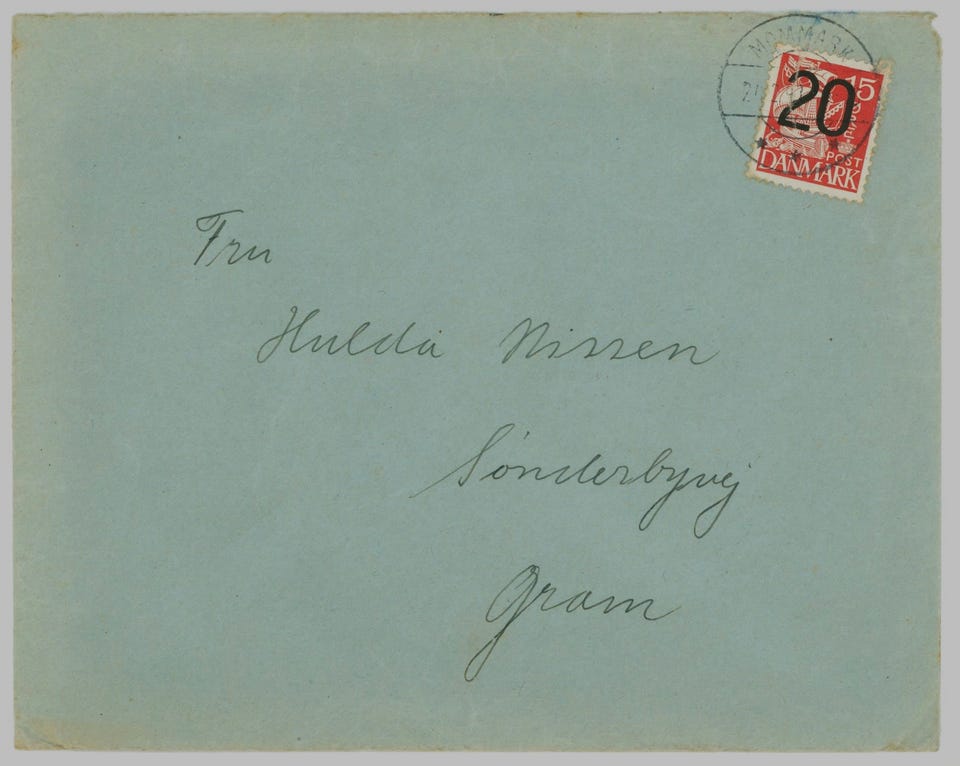 MOMMARK
15
20
POST
DANMARK
Fru
Hulda Nissen
Sønderbyvej
Gram